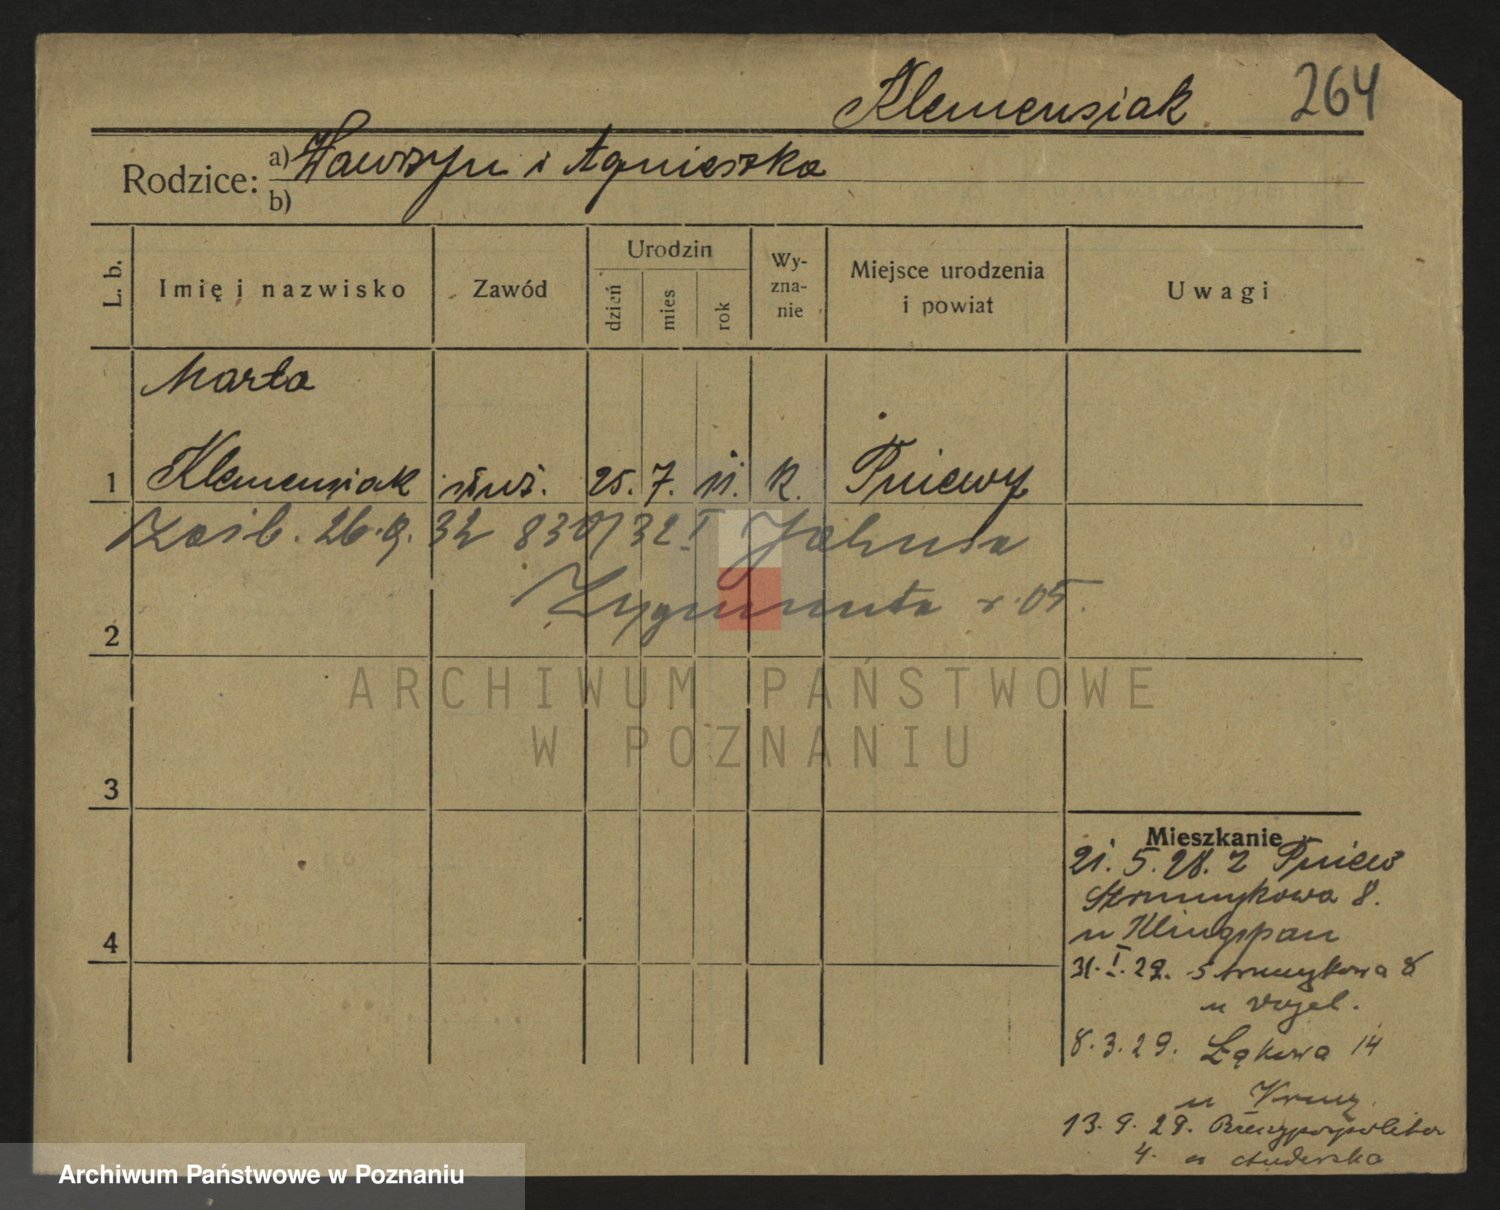 Klemensiak 264
Rodzice: a) Wawrzyn i Agnieszka
b)
L. b. Imię i nazwisko Zawód Urodzin dzień mies rok Wyznanie Miejsce urodzenia i powiat Uwagi
Marta
1 Klemensiak służ. 25. 7. 11. k. Pniewy
Zaśb. 26.9.32 830/32 I Jahnsa
2 Zygmunta r. 05.
ARCHIWUM PAŃSTWOWE
W POZNANIU
3
4
Mieszkanie
21. 5. 28. z Pniew
Strumykowa 8.
u Klingspan
31. I. 29. Strumykowa 8
u Vogel.
8. 3. 29. Łąkowa 14
u
13. 9. 29. Rzeczypospolitej
4. u
Archiwum Państwowe w Poznaniu